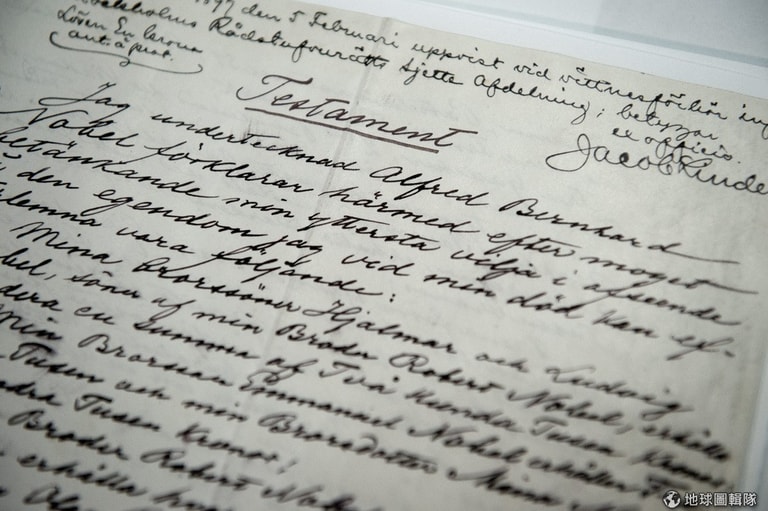 1897 den 5 Februari uppvist vid vittnesförhör in
Stockholms Rådstufvurätts sjette Afdelning; betygar
Lösen En krona
ex officio.
Jacob
Testament
Jag undertecknad Alfred Bernhard
Nobel förklarar härmed efter moget
betänkande min yttersta vilja i afseende
å den egendom jag vid min död kan ef-
terlemna vara följande:
Mina Brorssöner Hjalmar och Ludvig
Nobel, söner af min Broder Robert Nobel, erhålla
en Summa af Två Hundra Tusen Kronor
Min Brorson Emmanuel Nobel erhåller
Tusen och min Brorsdotter Mina
Tusen Kronor;
Broder Robert
erhålla
地球圖輯隊